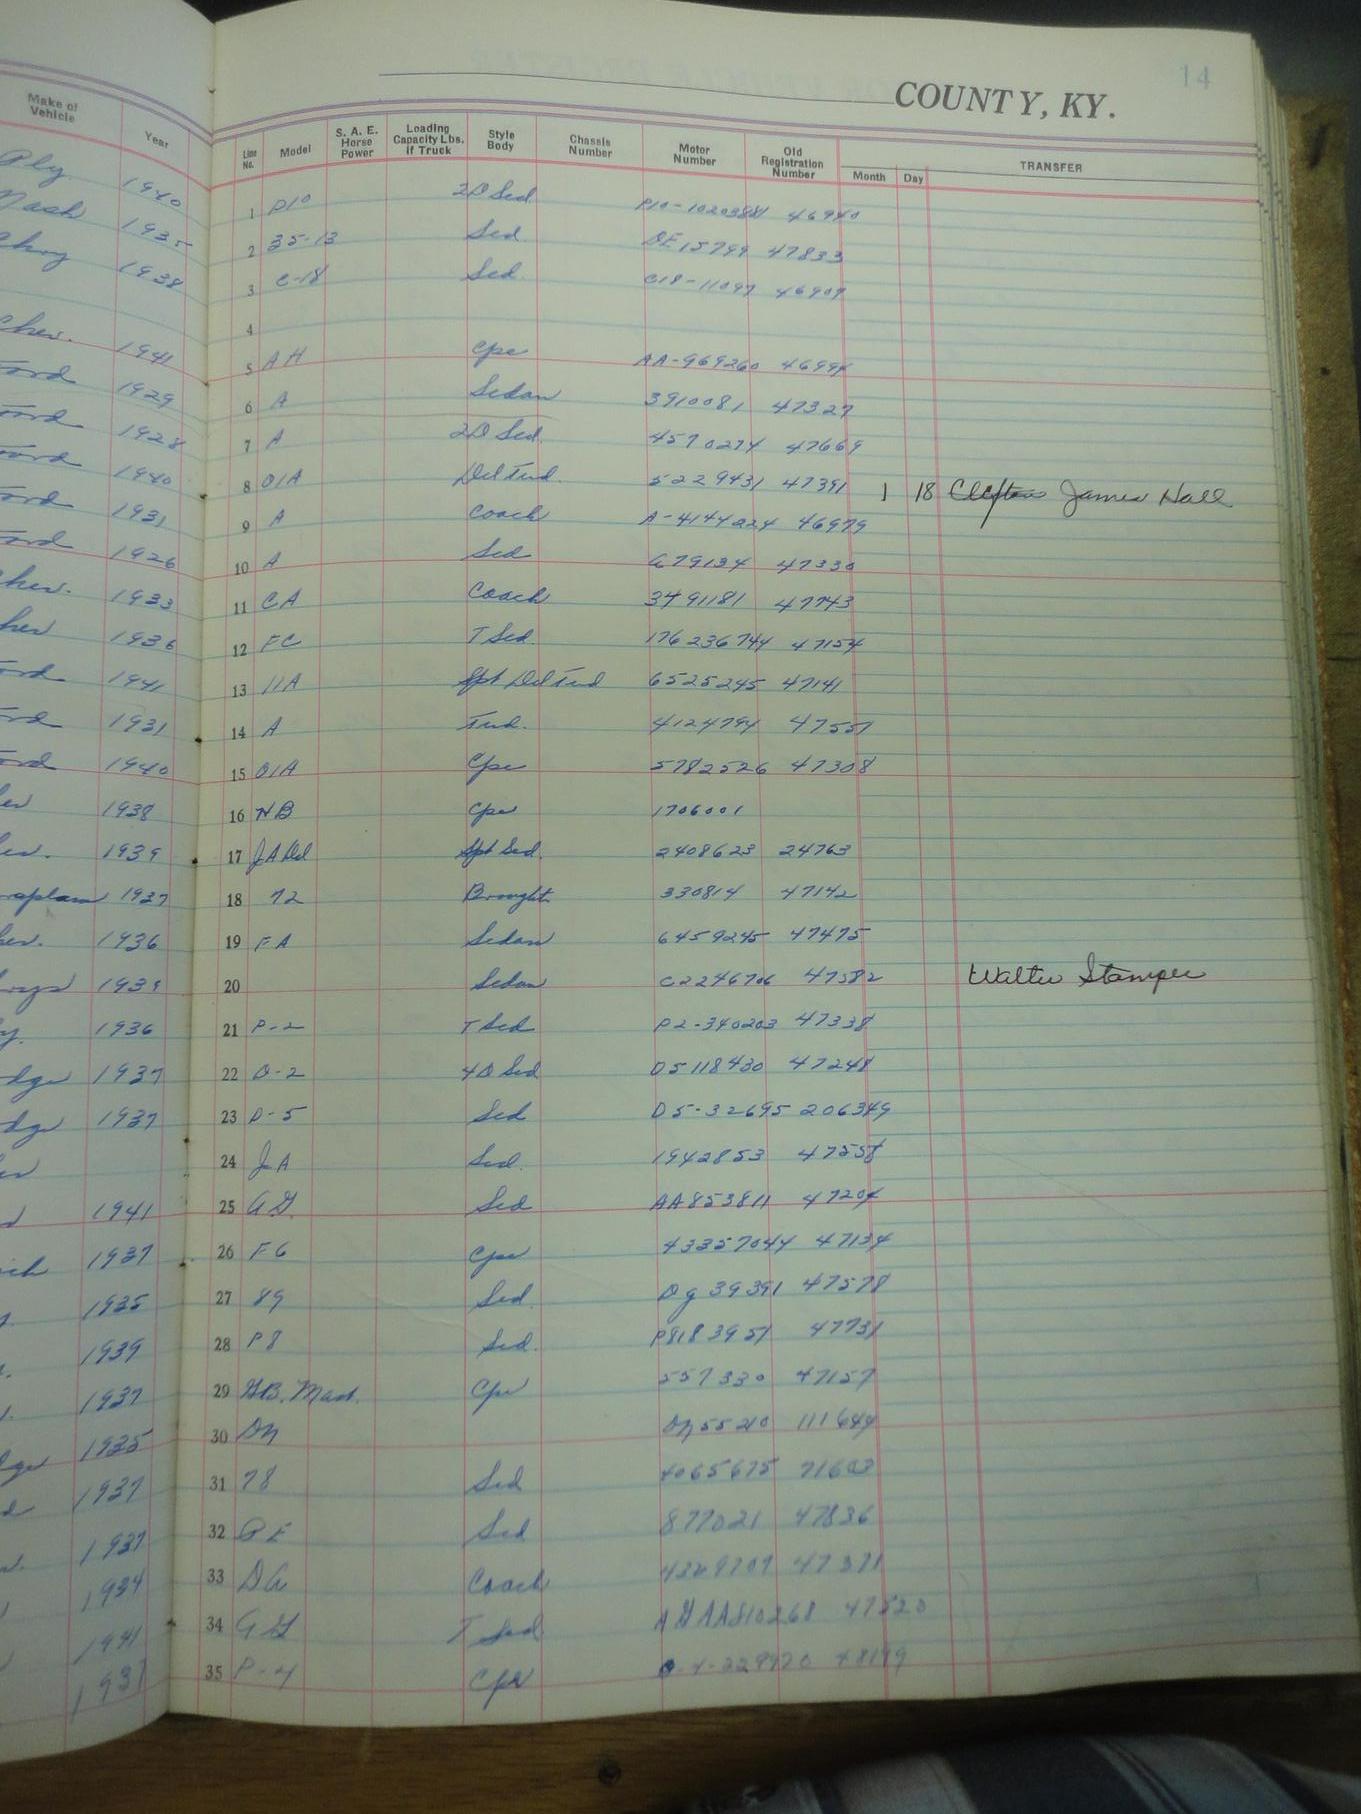 14
COUNTY, KY.
Make of Vehicle Year
Line No. Model S. A. E. Horse Power Loading Capacity Lbs. if Truck Style Body Chassis Number Motor Number Old Registration Number TRANSFER Month Day
Ply 1940 1 P10 2D Sed P10-1020388 46940
Nash 1935 2 35-13 Sed 47833
1938 3 C-18 Sed C18-11097 46909
4
Chev. 1941 5 AH Cpe AA-969260 46994
Ford 1929 6 A Sedan 3910081 47327
Ford 1928 7 A 2D Sed. 4570274 47669
Ford 1940 8 01A Del Tud. 5229431 47391 1 18 James Hall
Ford 1931 9 A Coach A-4144224 46979
Ford 1926 10 A Sed 679134 47330
Chev. 1933 11 CA Coach 3491181 47743
Chev 1936 12 FC T Sed. 47154
Ford 1941 13 11A Spt Del Tud 6525245 47141
Ford 1931 14 A Tud. 4124794 47557
Ford 1940 15 01A Cpe 5782526 47308
1938 16 HB Cpe 1706001
1939 17 JA Dd Spt Sed. 2408623 24763
1937 18 72 Brought. 330814 47142
1936 19 FA Sedan 6459245 47475
1939 20 Sedan C2246706 47582 Walter Stamper
1936 21 P-2 T Sed P2-340203 47338
1937 22 D-2 4D Sed D5118430 47248
1937 23 D-5 Sed D5-32695 206349
24 JA Sed. 1942853 47558
1941 25 AG. Sed AA853811 47204
1937 26 F6 Cpe 47134
1935 27 89 Sed. Dg 39391 47578
1939 28 P8 Sed. P8183951 47731
1937 29 Mast. Cpe 557330 47157
1935 30 55210 111644
1937 31 78 Sed 4065675 71603
1937 32 Sed 877021 47836
1934 33 DA Coach 4369709 47371
1941 34 AG T Sed
1937 35 P-4 Cpe 48199